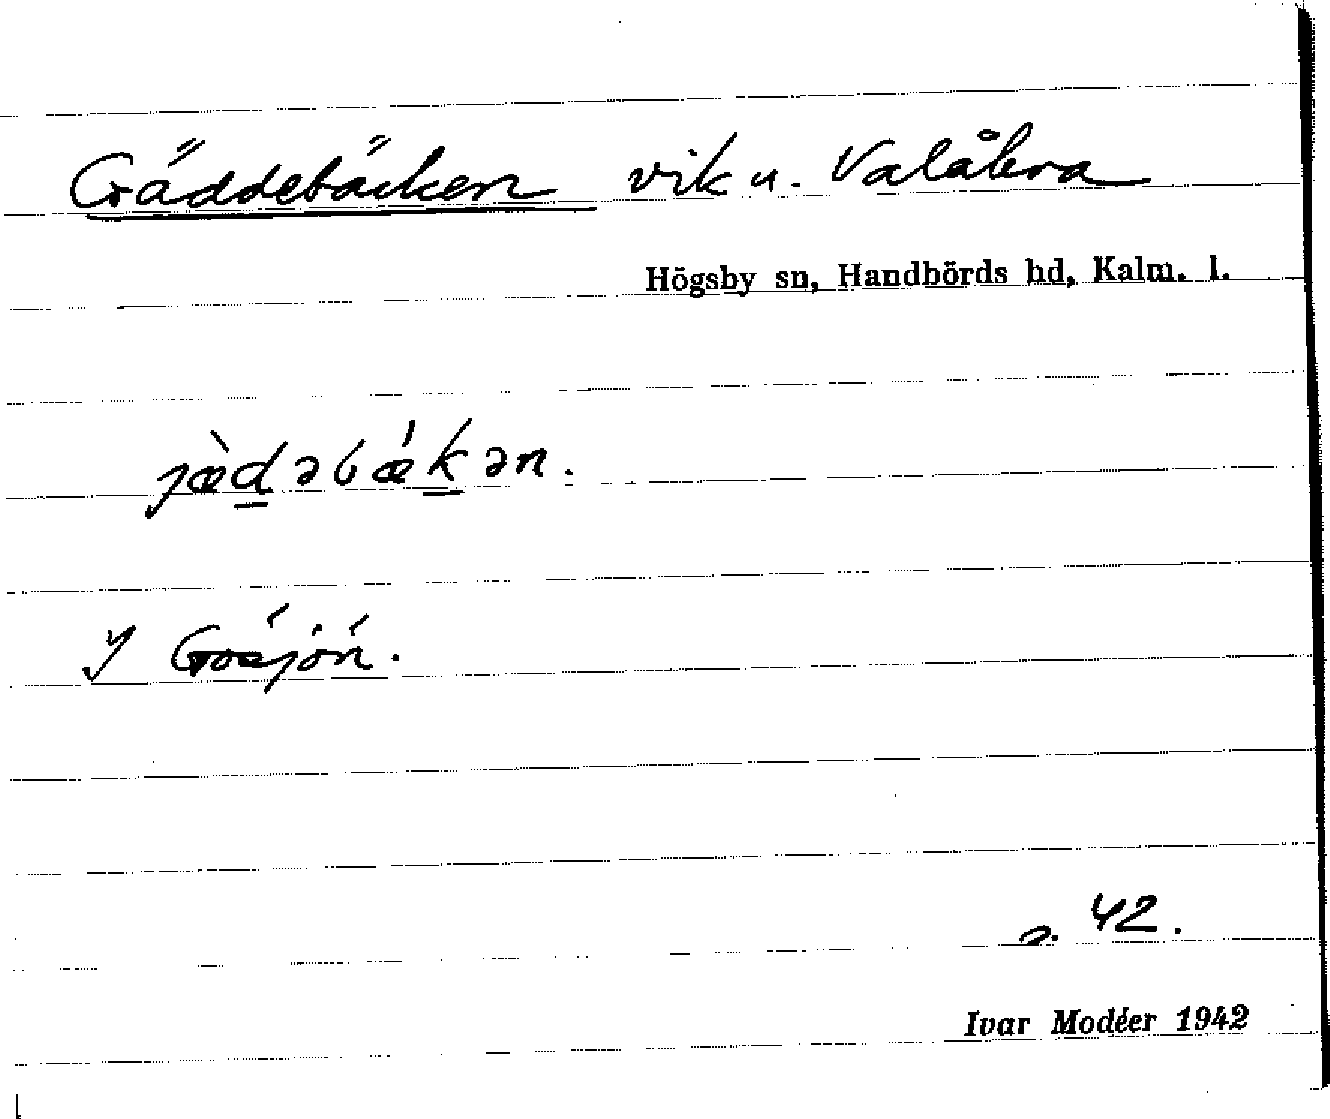 Gäddebäcken vik u. Valåkra
Högsby sn, Handbörds hd, Kalm. l.
jæ̀dəbǽkən.
I Gosjön.
s. 42.
Ivar Modéer 1942